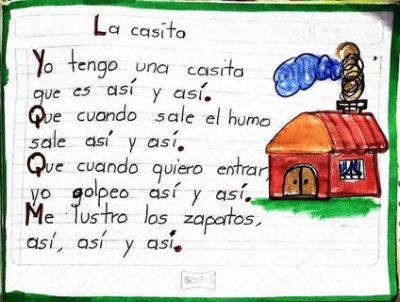 La casita
Yo tengo una casita
que es así y así.
Que cuando sale el humo
sale así y así.
Que cuando quiero entrar
yo golpeo así y así.
Me lustro los zapatos,
así, así y así.
Scribe